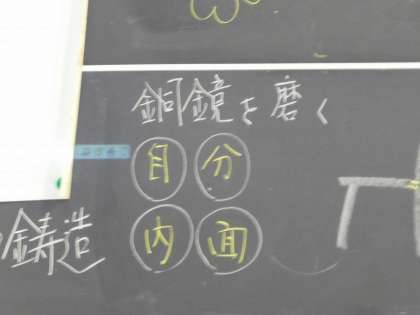 銅鏡を磨く
自分
鋳造
内面